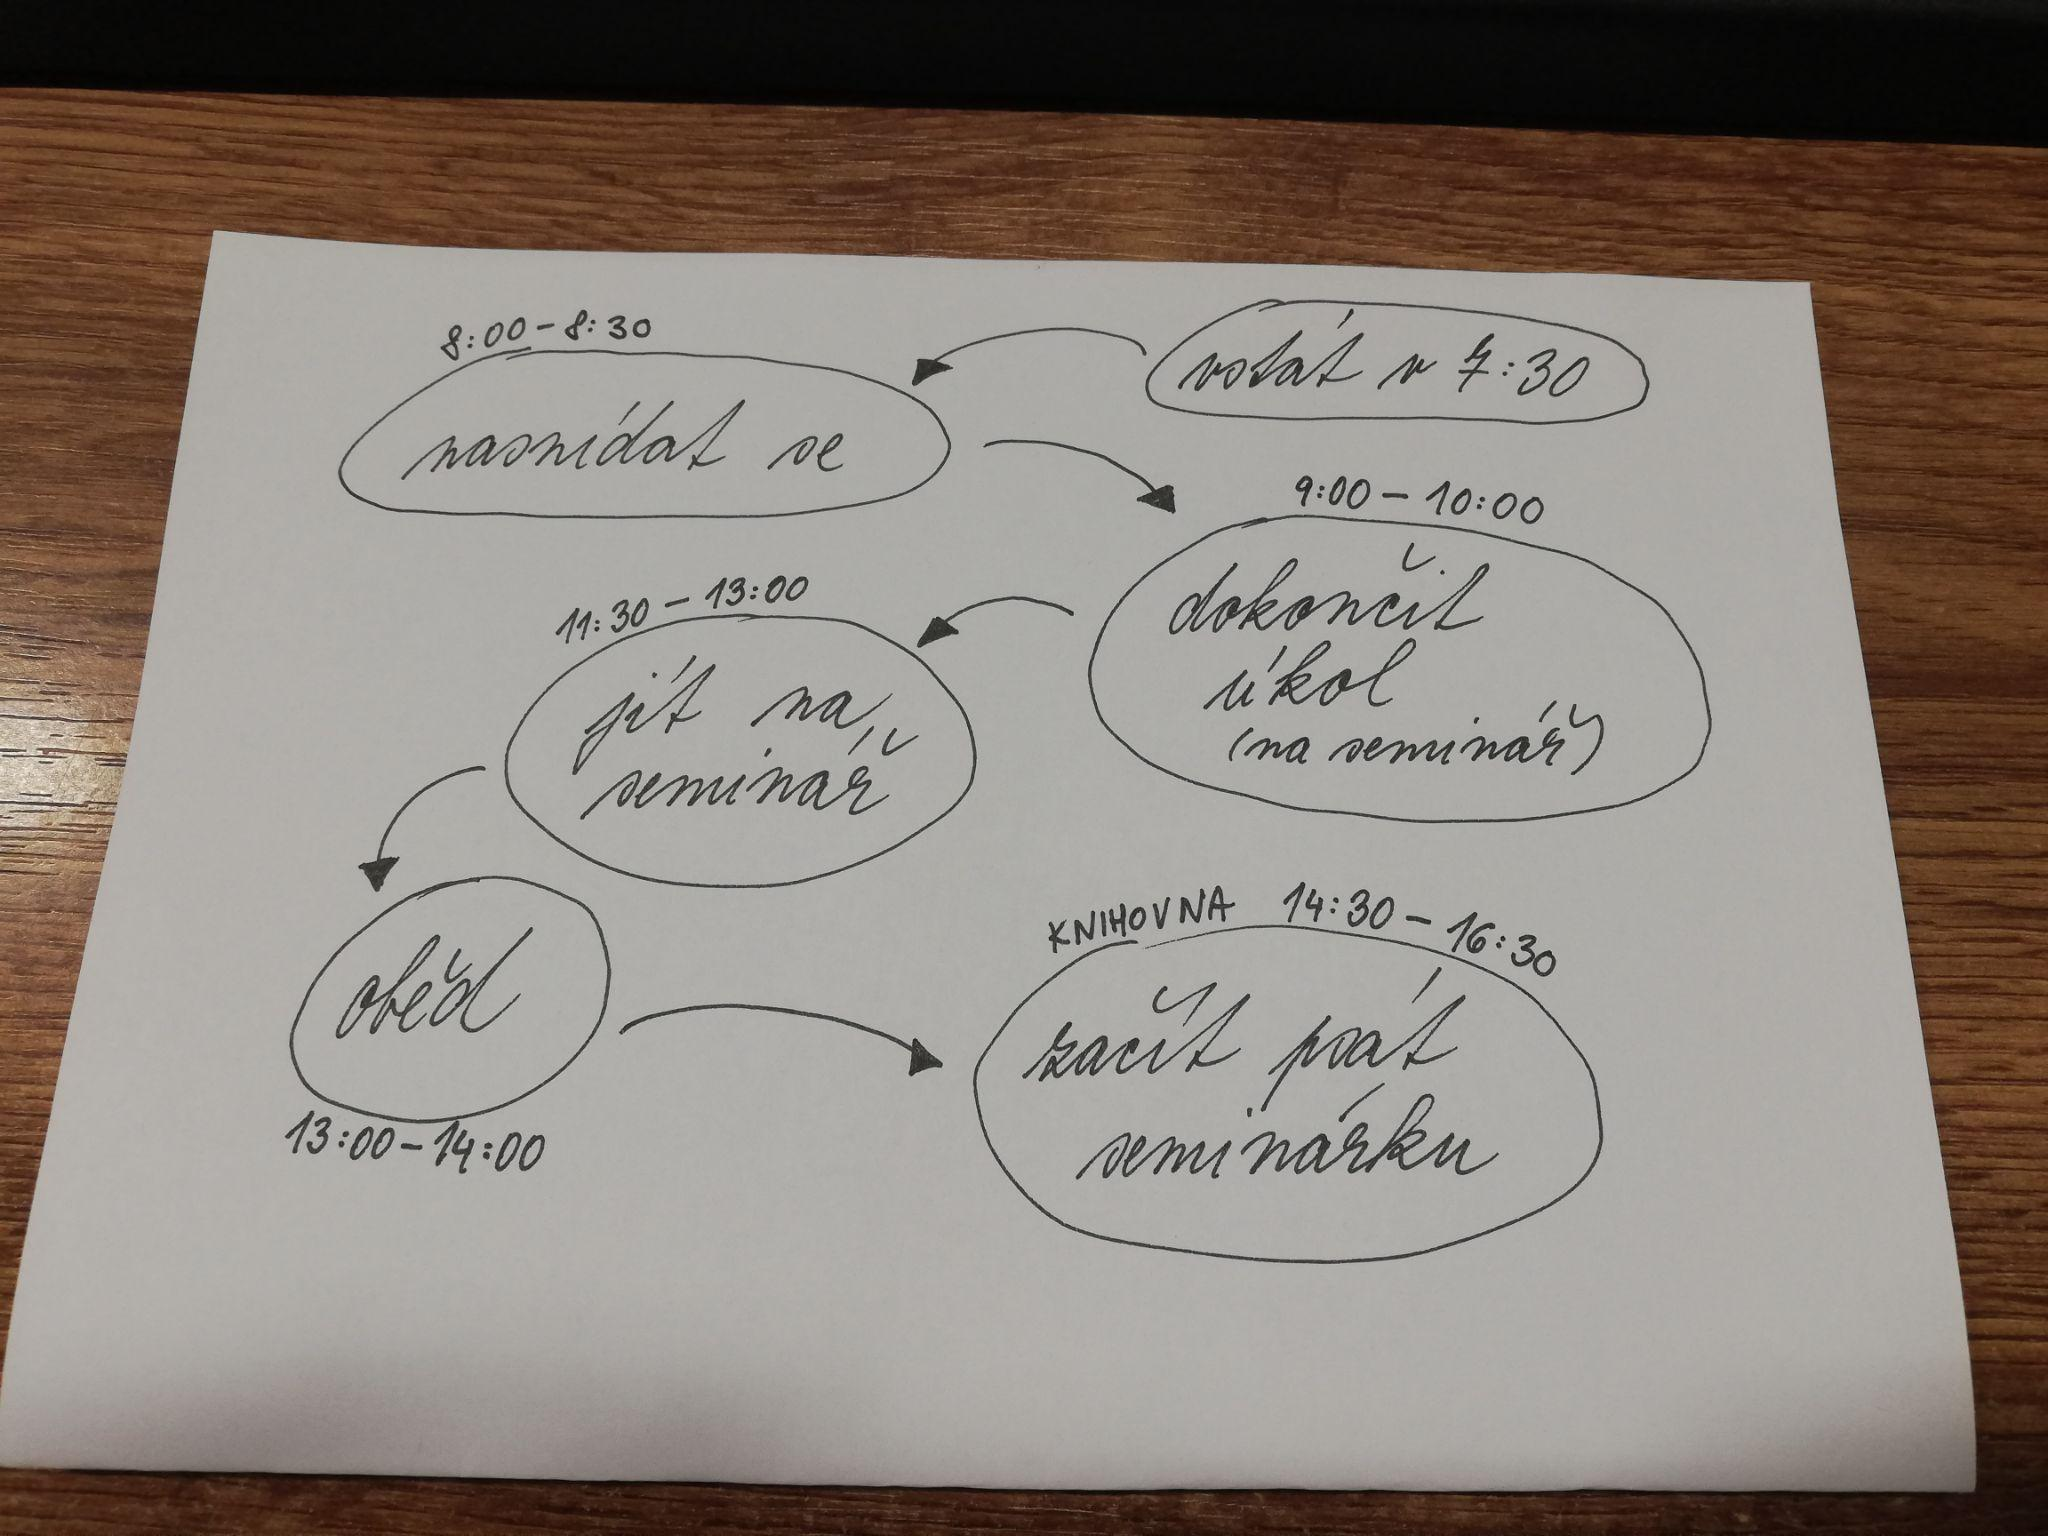 vstát v 7:30
8:00 - 8:30
nasnídat se
9:00 - 10:00
dokončit
úkol
(na seminář)
11:30 - 13:00
jít na
seminář
oběd
13:00 - 14:00
KNIHOVNA 14:30 - 16:30
začít psát
seminárku